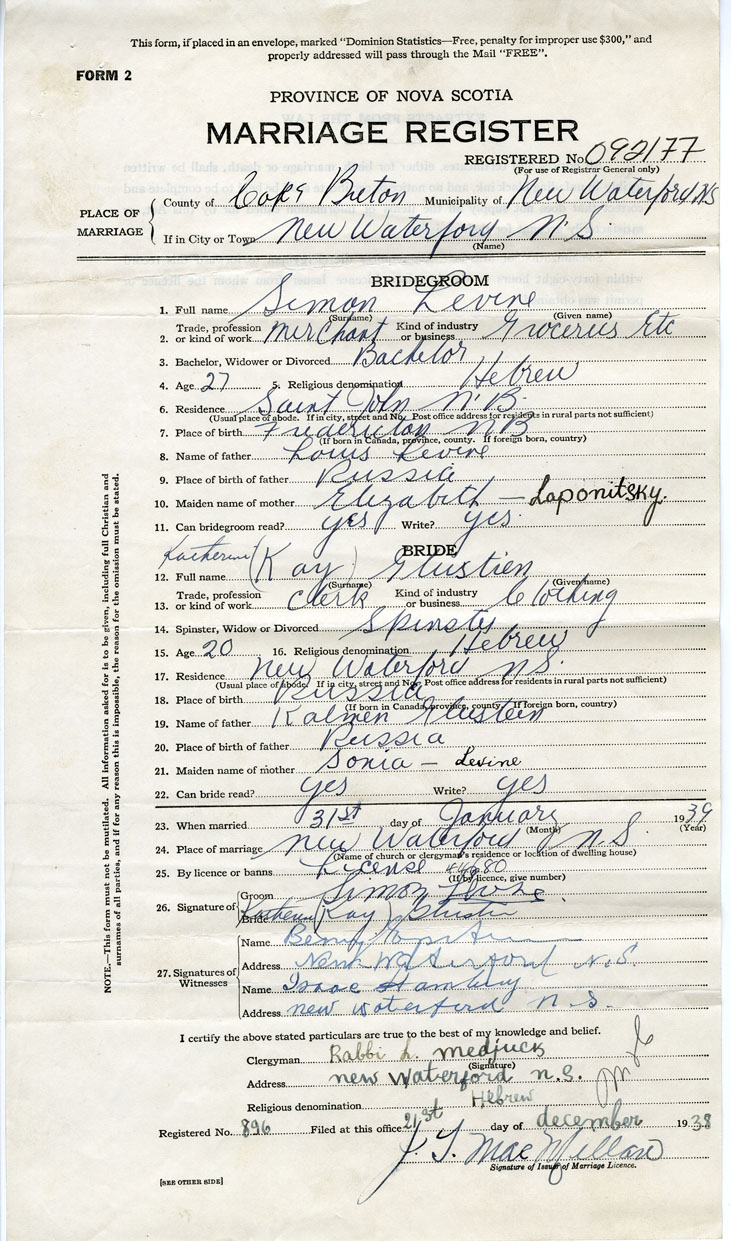 This form, if placed in an envelope, marked "Dominion Statistics—Free, penalty for improper use $300," and
properly addressed will pass through the Mail "FREE".
FORM 2
PROVINCE OF NOVA SCOTIA
MARRIAGE REGISTER
REGISTERED No. 092177
(For use of Registrar General only)
PLACE OF MARRIAGE
County of Cape Breton Municipality of New Waterford NS
If in City or Town New Waterford N.S.
(Name)
BRIDEGROOM
1. Full name Simon Levine
(Surname) (Given name)
2. Trade, profession or kind of work Merchant Kind of industry or business Groceries Etc
3. Bachelor, Widower or Divorced Bachelor
4. Age 27 5. Religious denomination Hebrew
6. Residence Saint John N.B.
(Usual place of abode. If in city, street and No. Post office address for residents in rural parts not sufficient)
7. Place of birth Fredericton N B
(If born in Canada, province, county. If foreign born, country)
8. Name of father Louis Levine
9. Place of birth of father Russia
10. Maiden name of mother Elizabeth — Laponitsky.
11. Can bridegroom read? yes Write? yes.
BRIDE
12. Full name Katherine (Kay) Glustien
(Surname) (Given name)
13. Trade, profession or kind of work Clerk Kind of industry or business Clothing
14. Spinster, Widow or Divorced Spinster
15. Age 20 16. Religious denomination Hebrew
17. Residence New Waterford N.S.
(Usual place of abode. If in city, street and No. Post office address for residents in rural parts not sufficient)
18. Place of birth Russia
(If born in Canada, province, county. If foreign born, country)
19. Name of father Kalmen Glustein
20. Place of birth of father Russia
21. Maiden name of mother Sonia — Levine
22. Can bride read? yes Write? yes
23. When married 31st day of January 1939
(Month) (Year)
24. Place of marriage New Waterford N S
(Name of church or clergyman's residence or location of dwelling house)
25. By licence or banns License
(If by licence, give number)
26. Signature of
Groom Simon
Bride Katherine (Kay)
27. Signatures of Witnesses
Name
Address New Waterford N.S.
Name Isaac
Address new waterford n.s.
I certify the above stated particulars are true to the best of my knowledge and belief.
Clergyman Rabbi L. medjuck
(Signature)
Address new waterford n.s.
Religious denomination Hebrew
Registered No. 896 Filed at this office 21st day of december 1938
J. G. MacMillan
Signature of Issuer of Marriage Licence.
[SEE OTHER SIDE]
NOTE.—This form must not be mutilated. All information asked for is to be given, including full Christian and
surnames of all parties, and if for any reason this is impossible, the reason for the omission must be stated.